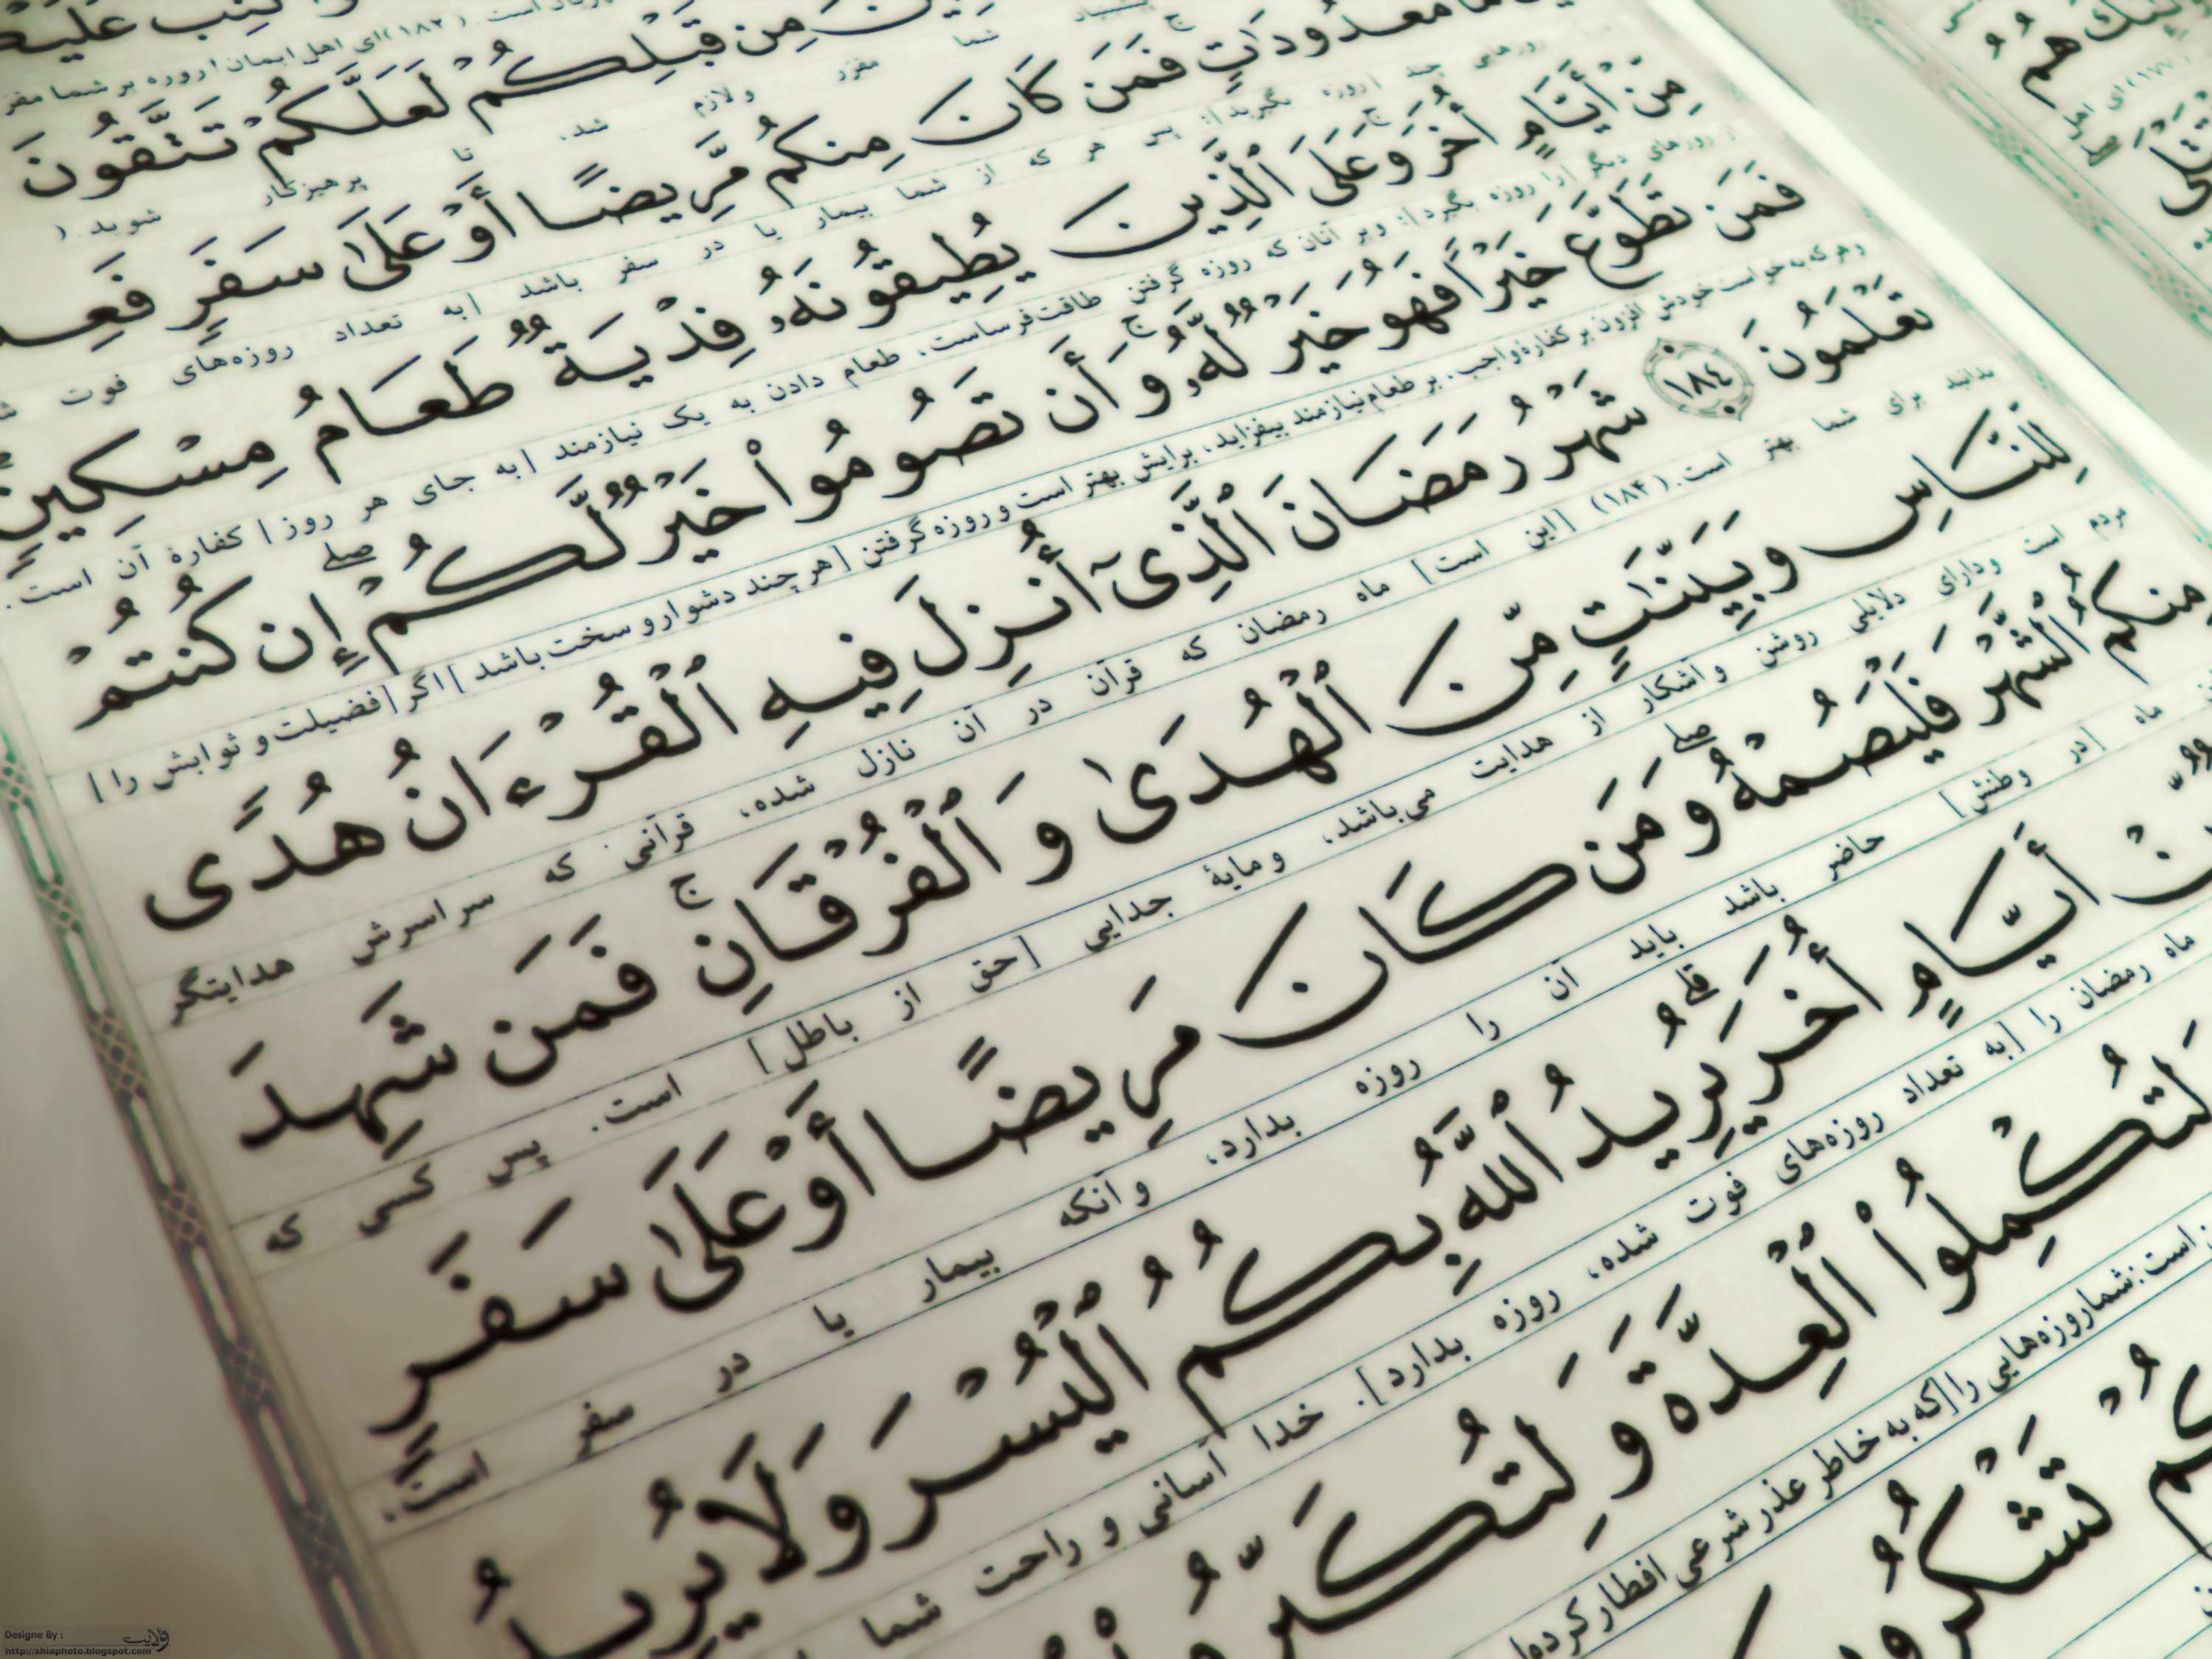 مِن قَبْلِكُمْ لَعَلَّكُمْ تَتَّقُونَ
(۱۸۳) ای اهل ایمان! روزه بر شما مقرر
شما مقرر و لازم شد، تا پرهیزکار شوید. (
مَعْدُودَاتٍ فَمَن كَانَ مِنكُم مَّرِيضًا أَوْ عَلَىٰ سَفَرٍ فَعِدَّ
روزهای چند [روزه بگیرید]؛ پس هر که از شما بیمار یا در سفر باشد [به تعداد روزه‌های فوت
مِنْ أَيَّامٍ أُخَرَ ۚ وَعَلَى ٱلَّذِينَ يُطِيقُونَهُۥ فِدْيَةٌ طَعَامُ مِسْكِينٍ
روزهای دیگر [را روزه بگیرد]؛ و بر آنان که روزه گرفتن طاقت‌فرساست، طعام دادن به یک نیازمند [به جای هر روز] کفارهٔ آن است.
فَمَن تَطَوَّعَ خَيْرًا فَهُوَ خَيْرٌ لَّهُۥ ۚ وَأَن تَصُومُوا۟ خَيْرٌ لَّكُمْ ۖ إِن كُنتُمْ
و هر که به خواست خودش افزون بر کفارهٔ واجب، بر طعام نیازمند بیفزاید، برایش بهتر است و روزه گرفتن [هر چند دشوار و سخت باشد] اگر [فضیلت و ثوابش را]
تَعْلَمُونَ ١٨٤ شَهْرُ رَمَضَانَ ٱلَّذِىٓ أُنزِلَ فِيهِ ٱلْقُرْءَانُ هُدًى
بدانید برای شما بهتر است. (۱۸۴) [این است] ماه رمضان که قرآن در آن نازل شده، قرآنی که سراسرش هدایتگر
لِّلنَّاسِ وَبَيِّنَٰتٍ مِّنَ ٱلْهُدَىٰ وَٱلْفُرْقَانِ ۚ فَمَن شَهِدَ
مردم است و دارای دلایلی روشن و آشکار از هدایت می‌باشد، و مایهٔ جدایی [حق از باطل] است. پس کسی که
مِنكُمُ ٱلشَّهْرَ فَلْيَصُمْهُ ۖ وَمَن كَانَ مَرِيضًا أَوْ عَلَىٰ سَفَرٍ
ماه [در وطنش] حاضر باشد باید آن را روزه بدارد، و آنکه بیمار یا در سفر است،
أَيَّامٍ أُخَرَ ۗ يُرِيدُ ٱللَّهُ بِكُمُ ٱلْيُسْرَ وَلَا يُرِيدُ
ماه رمضان را [به تعداد روزه‌های فوت شده، روزه بدارد]. خدا آسانی و راحت شما
لِتُكْمِلُوا۟ ٱلْعِدَّةَ وَلِتُكَبِّرُ
است: شما روزه‌هایی را [که به خاطر عذر شرعی افطار کرده‌ا
كُمْ تَشْكُرُو
Designe By : ولایت
http://shiaphoto.blogspot.com